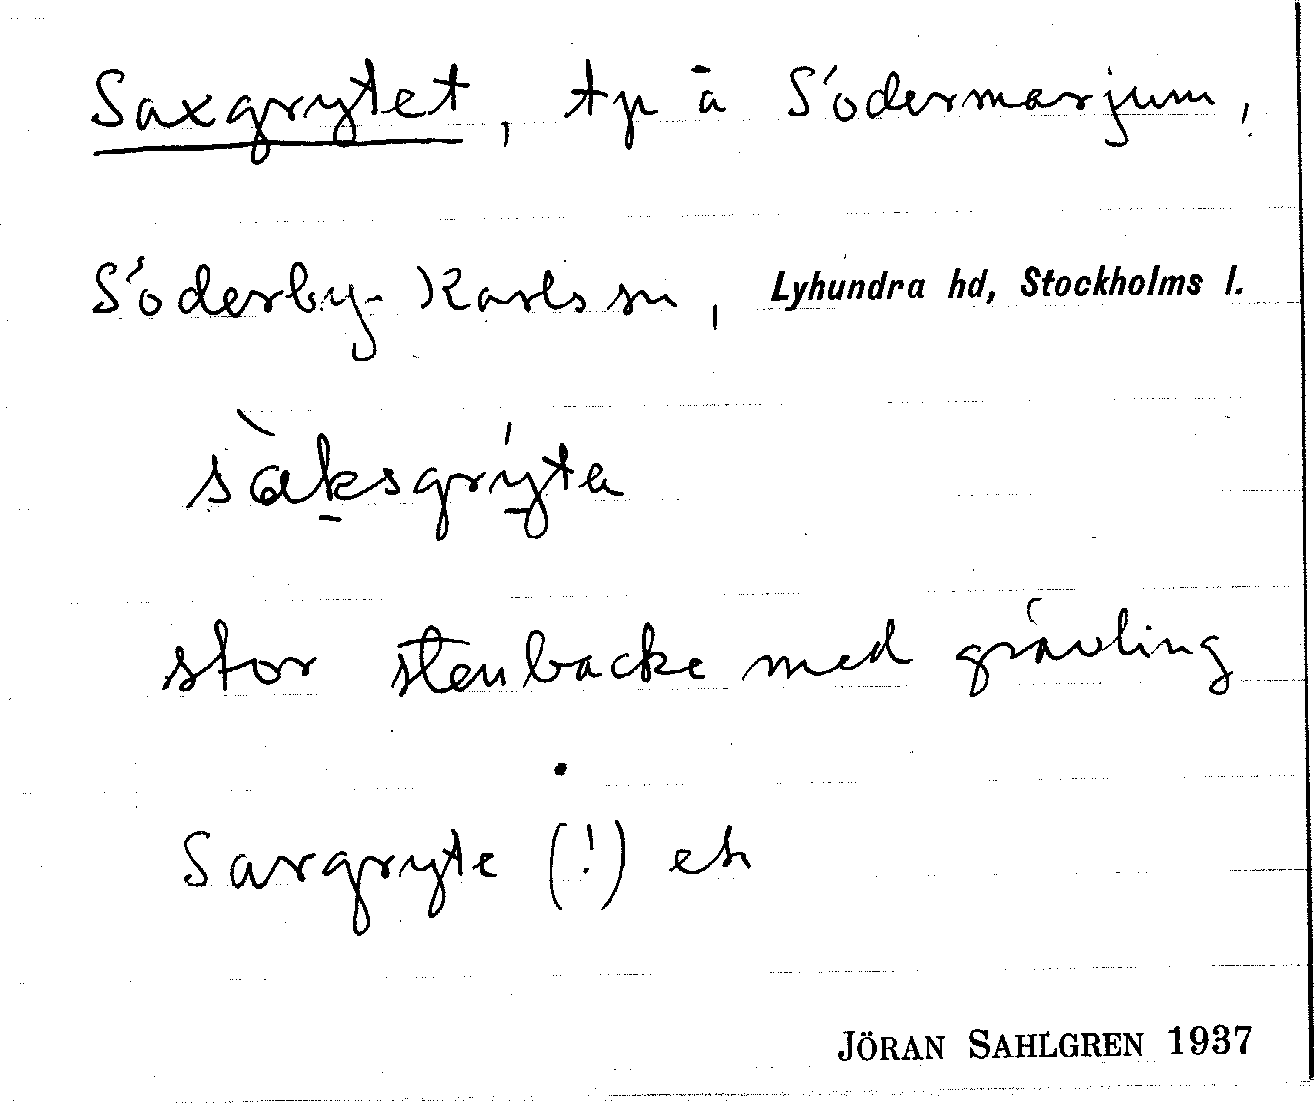 Saxgrytet, tp å Södermarjum,
Söderby-Karls sn, Lyhundra hd, Stockholms l.
sàksgrýta
stor stenbacke med grävling
Sargryte (!) ek
JÖRAN SAHLGREN 1937